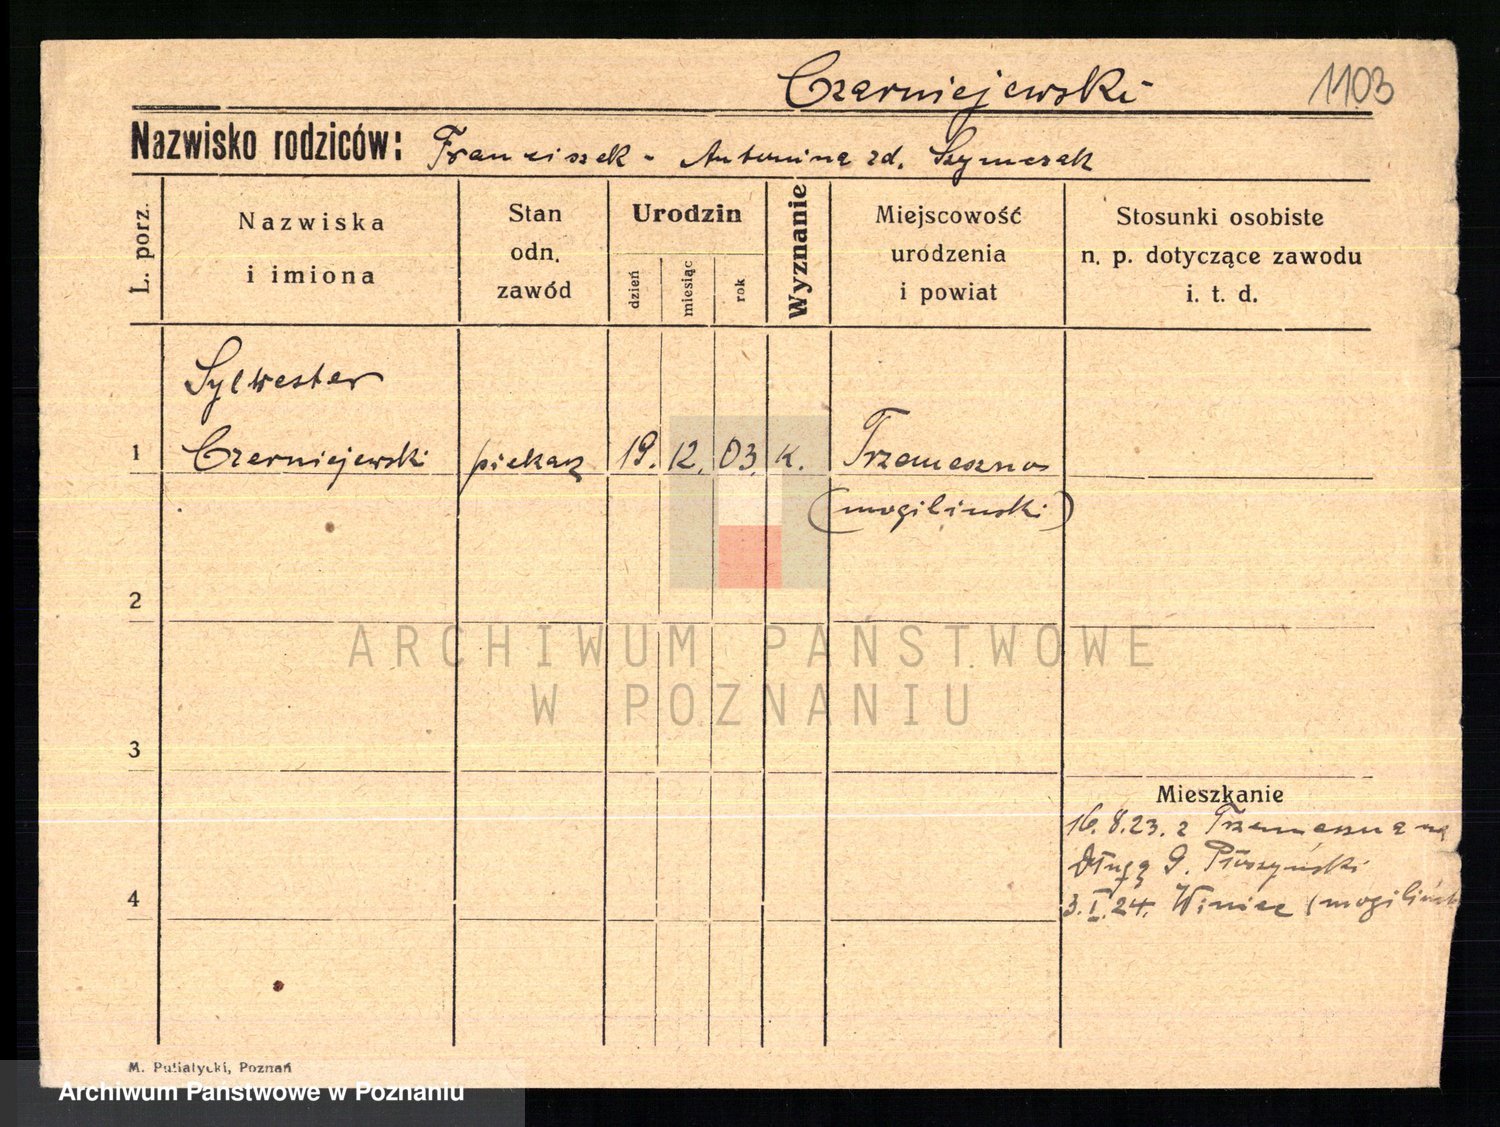 Czerniejewski
1103
Nazwisko rodziców: Franciszek - Antonina zd. Szymczak
L. porz.
Nazwiska
i imiona
Stan
odn.
zawód
Urodzin
dzień
miesiąc
rok
Wyznanie
Miejscowość
urodzenia
i powiat
Stosunki osobiste
n. p. dotyczące zawodu
i. t. d.
Sylwester
1 Czerniejewski piekarz 19. 12. 03. k. Trzemeszno
(mogilinski)
2
ARCHIWUM PAŃSTWOWE
W POZNANIU
3
Mieszkanie
16. 8. 23. z Trzemeszna na
Długą 9.
4
3. I. 24. Winiec (mogilińsk
M. Putiatycki, Poznań
Archiwum Państwowe w Poznaniu